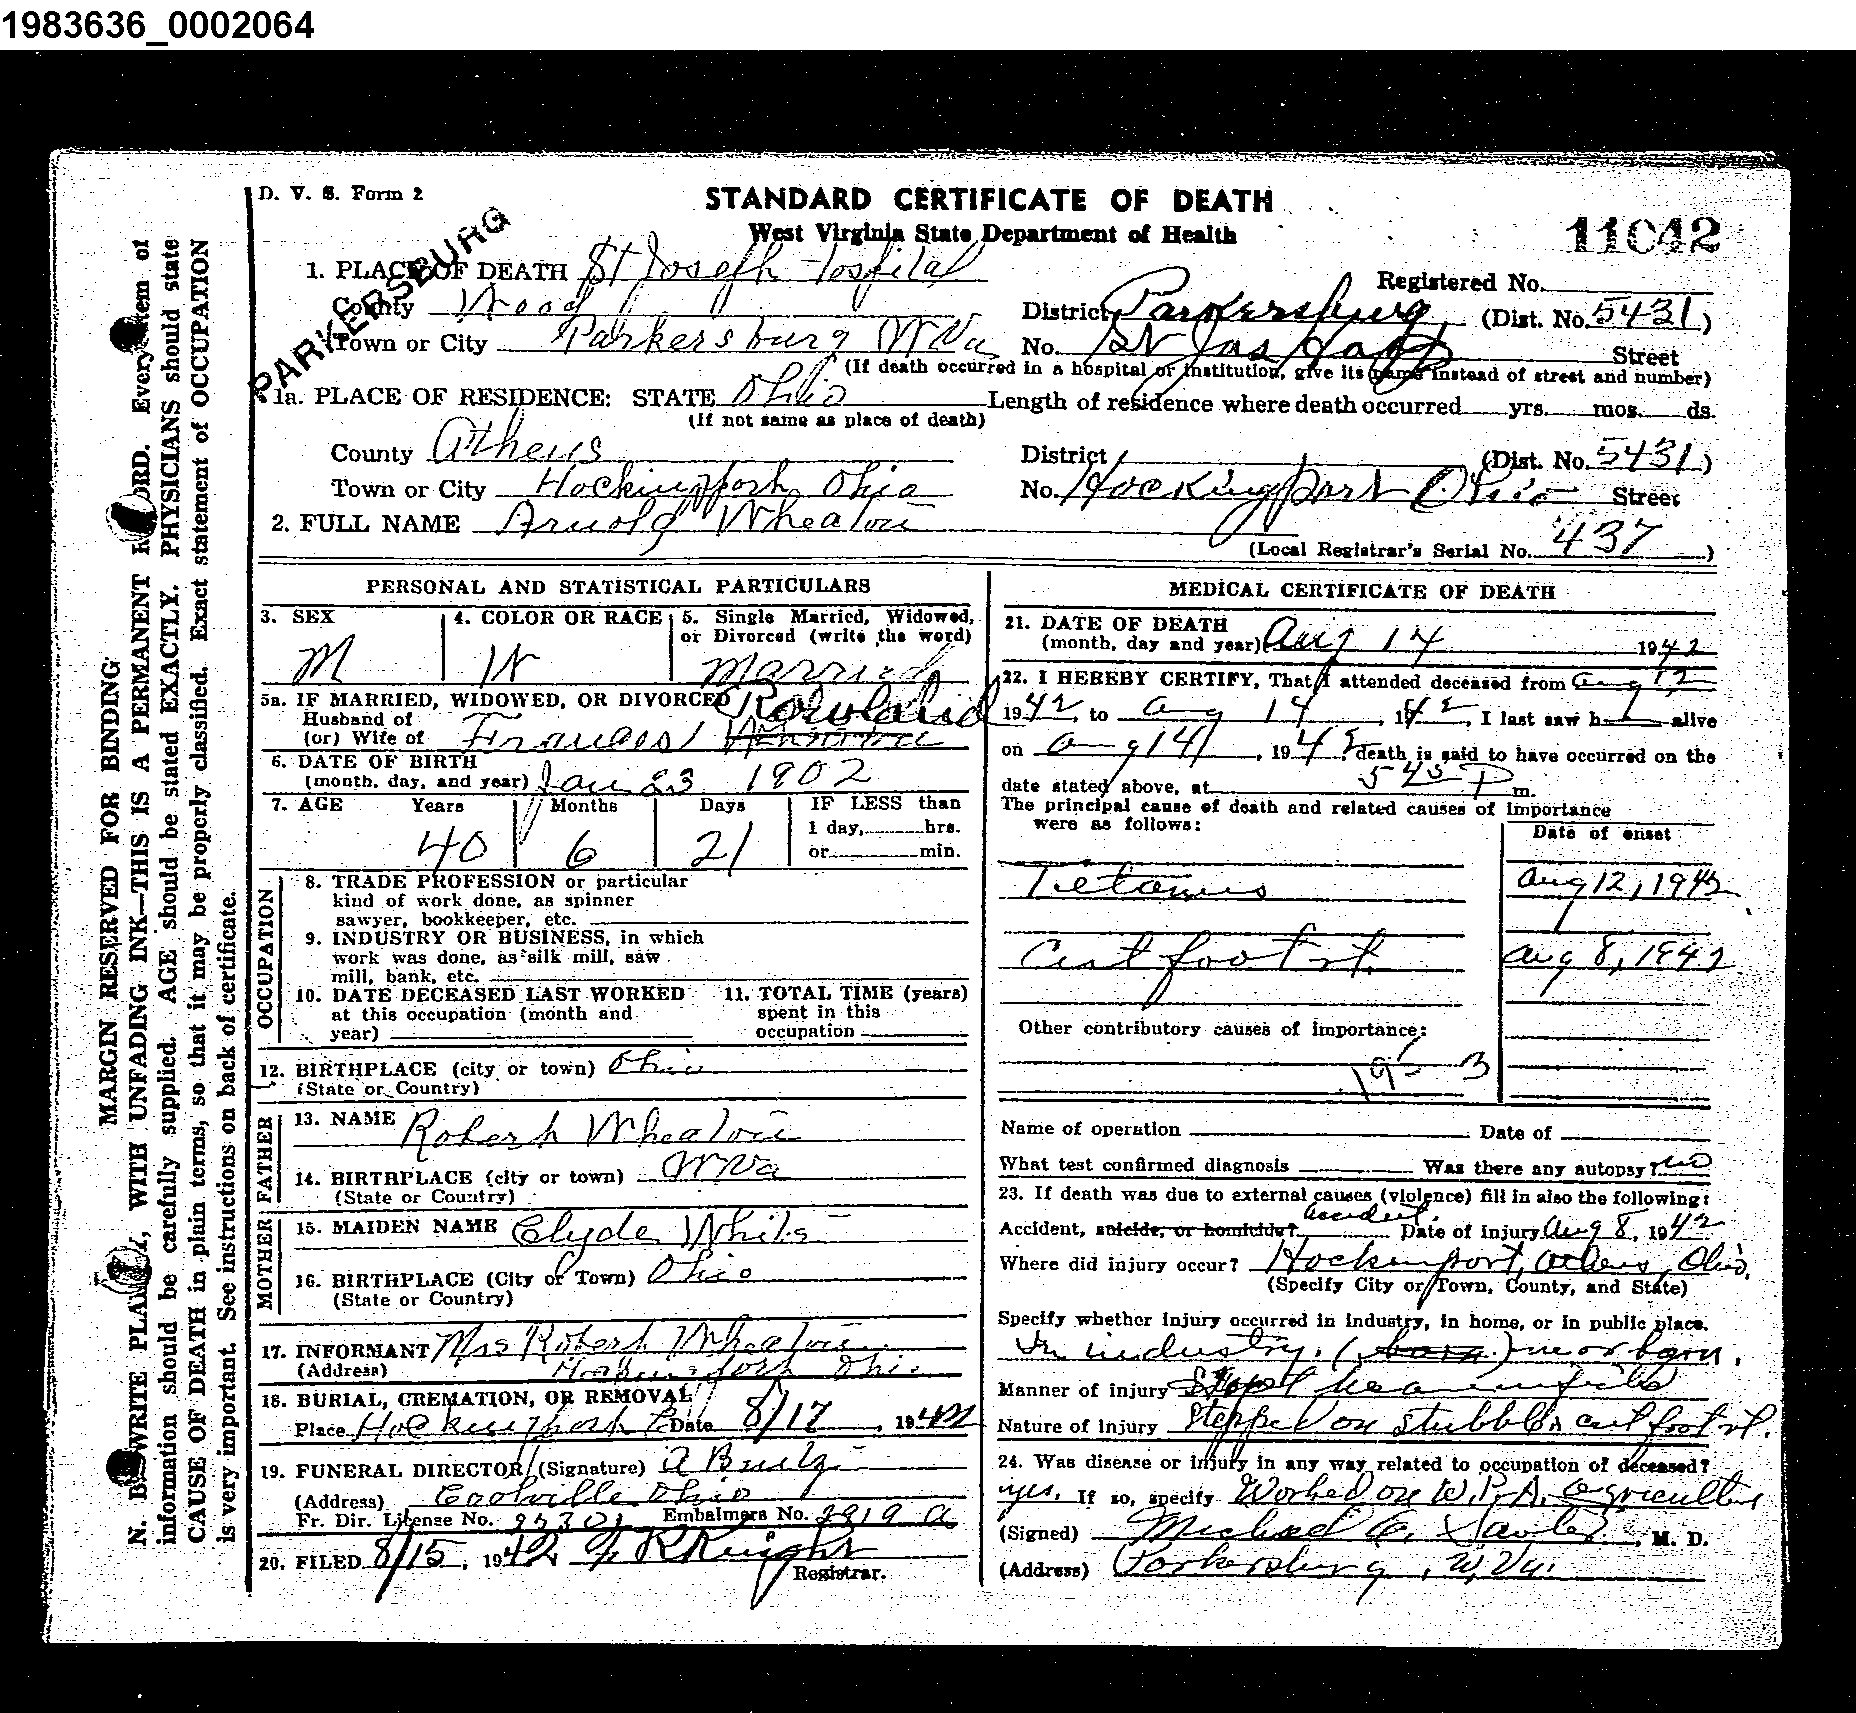 1983636_0002064
D. V. S. Form 2
STANDARD CERTIFICATE OF DEATH
West Virginia State Department of Health
11042
PARKERSBURG
1. PLACE OF DEATH St Joseph Hospital
Registered No.
County Wood
District Parkersburg (Dist. No. 5431)
Town or City Parkersburg W Va
No. St Jos Hosp Street
(If death occurred in a hospital or institution, give its name instead of street and number)
1a. PLACE OF RESIDENCE: STATE Ohio Length of residence where death occurred yrs. mos. ds.
(If not same as place of death)
County Athens
District (Dist. No. 5431)
Town or City Hockingport Ohio
No. Hockingport Ohio Street
2. FULL NAME Arnold Wheaton
(Local Registrar's Serial No. 437)
PERSONAL AND STATISTICAL PARTICULARS
3. SEX 4. COLOR OR RACE 5. Single Married, Widowed,
or Divorced (write the word)
M W Married
5a. IF MARRIED, WIDOWED, OR DIVORCED Rowland
Husband of
(or) Wife of Frances
6. DATE OF BIRTH
(month, day, and year) Jan 23 1902
7. AGE Years Months Days IF LESS than
1 day, hrs.
or min.
40 6 21
OCCUPATION
8. TRADE PROFESSION or particular
kind of work done, as spinner
sawyer, bookkeeper, etc.
9. INDUSTRY OR BUSINESS, in which
work was done, as silk mill, saw
mill, bank, etc.
10. DATE DECEASED LAST WORKED 11. TOTAL TIME (years)
at this occupation (month and spent in this
year) occupation
12. BIRTHPLACE (city or town) Ohio
(State or Country)
FATHER
13. NAME Robert Wheaton
14. BIRTHPLACE (city or town) W Va
(State or Country)
MOTHER
15. MAIDEN NAME Clyde White
16. BIRTHPLACE (City or Town) Ohio
(State or Country)
17. INFORMANT Mrs Robert Wheaton
(Address) Hockingport Ohio
18. BURIAL, CREMATION, OR REMOVAL
Place Hockingport Date 8/17, 1942
19. FUNERAL DIRECTOR (Signature)
(Address) Coolville Ohio
Fr. Dir. License No. Embalmers No. 2819 a
20. FILED 8/15, 1942 Knight
Registrar.
MEDICAL CERTIFICATE OF DEATH
21. DATE OF DEATH
(month, day and year) Aug 14 1942
22. I HEREBY CERTIFY, That I attended deceased from Aug 12
1942, to Aug 14, 1942, I last saw h alive
on Aug 14, 1942, death is said to have occurred on the
date stated above, at 5 45 P m.
The principal cause of death and related causes of importance
were as follows:
Date of onset
Tetanus Aug 12, 1942
Cut foot rt. Aug 8, 1942
Other contributory causes of importance:
Name of operation Date of
What test confirmed diagnosis Was there any autopsy? no
23. If death was due to external causes (violence) fill in also the following:
Accident, suicide, or homicide? accident. Date of injury Aug 8, 1942
Where did injury occur? Hockingport, Athens, Ohio.
(Specify City or Town, County, and State)
Specify whether injury occurred in industry, in home, or in public place.
In industry. (barn) near barn.
Manner of injury
Nature of injury Stepped on stubble cut foot rt.
24. Was disease or injury in any way related to occupation of deceased?
yes. If so, specify Worked on W.P.A. agriculture
(Signed) Michael, M. D.
(Address) Parkersburg, W. Va.
MARGIN RESERVED FOR BINDING
N. B. WRITE PLAINLY, WITH UNFADING INK—THIS IS A PERMANENT RECORD. Every item of
information should be carefully supplied. AGE should be stated EXACTLY. PHYSICIANS should state
CAUSE OF DEATH in plain terms, so that it may be properly classified. Exact statement of OCCUPATION
is very important. See instructions on back of certificate.